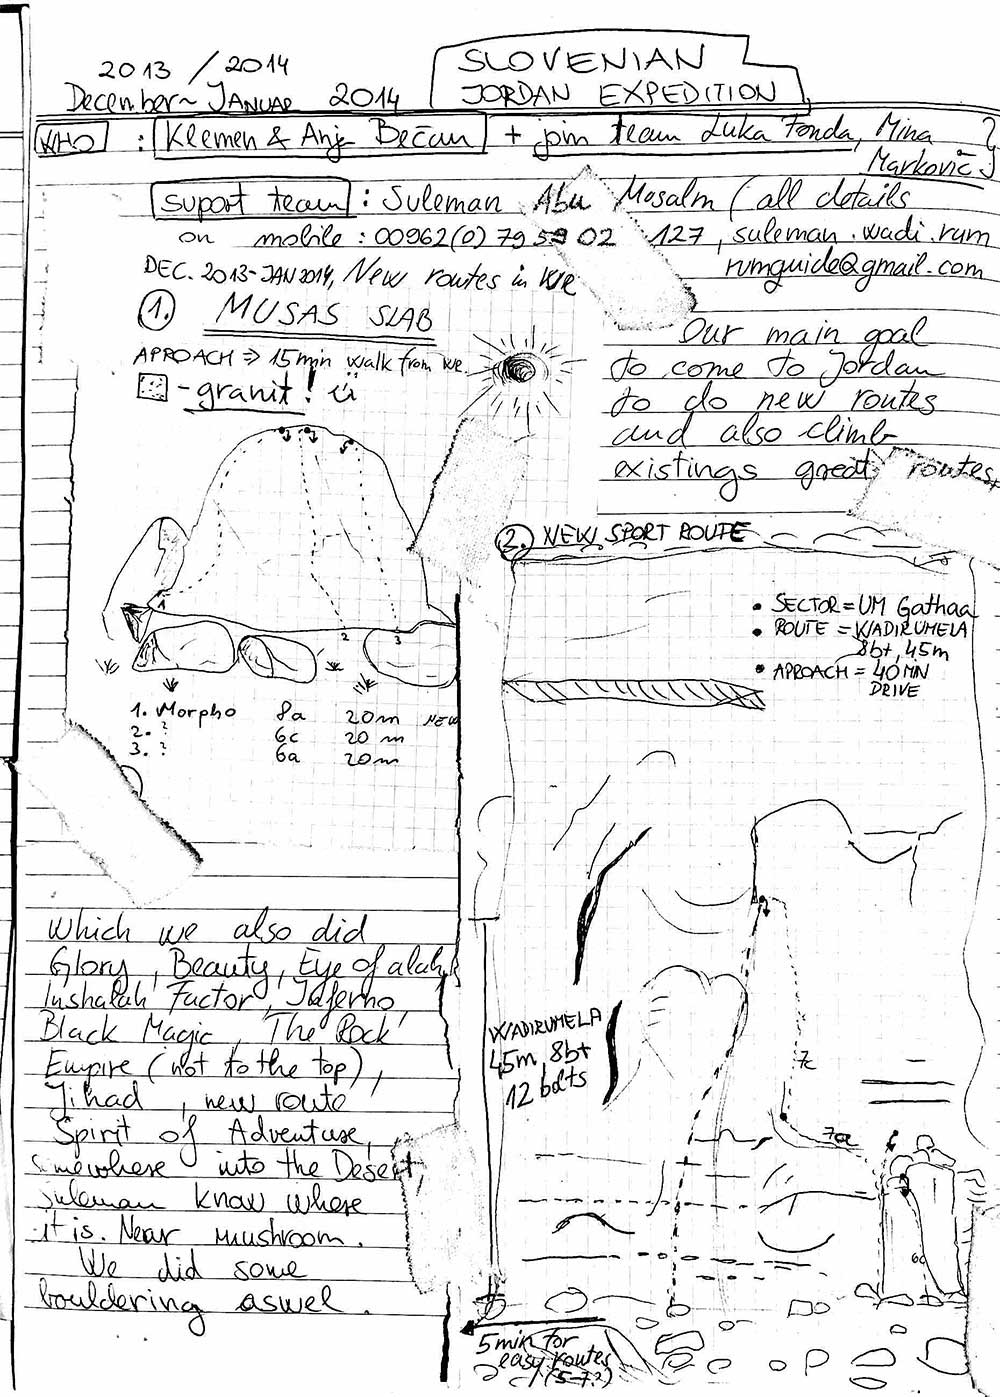 2013 / 2014
December ~ JANUAR 2014
SLOVENIAN
JORDAN EXPEDITION
WHO : Klemen & Anja Bečan + join team Luka Fonda, Mina
Markovič
suport team : Suleman Abu Mosalm (all details
on mobile : 00962(0) 79 59 02 127, suleman.wadi.rum
rumguide@gmail.com
DEC. 2013-JAN 2014, New routes in WR
1. MUSAS SLAB
APROACH ⇒ 15 min walk from WR.
- granit!
Our main goal
to come to Jordan
to do new routes
and also climb
existings great routes,
1
2
3
1. Morpho 8a 20m NEW
2. ? 6c 20 m
3. ? 6a 20m
which we also did
Glory, Beauty, Eye of alah,
Inshalah Factor, Jaferno,
Black Magic, 'The Rock'
Empire (not to the top),
Jihad, new route
Spirit of Adventure,
somewhere into the Desert
suleman know where
it is. Near muushroom.
We did some
bouldering aswel.
2. NEW SPORT ROUTE
• SECTOR = UM Gathaa
• ROUTE = WADIRUMELA
8b+, 45m
• APROACH = 40 MIN
DRIVE
WADIRUMELA
45m, 8b+
12 bolts
7c
7a
6c
5 min for
easy routes
(5-7?)